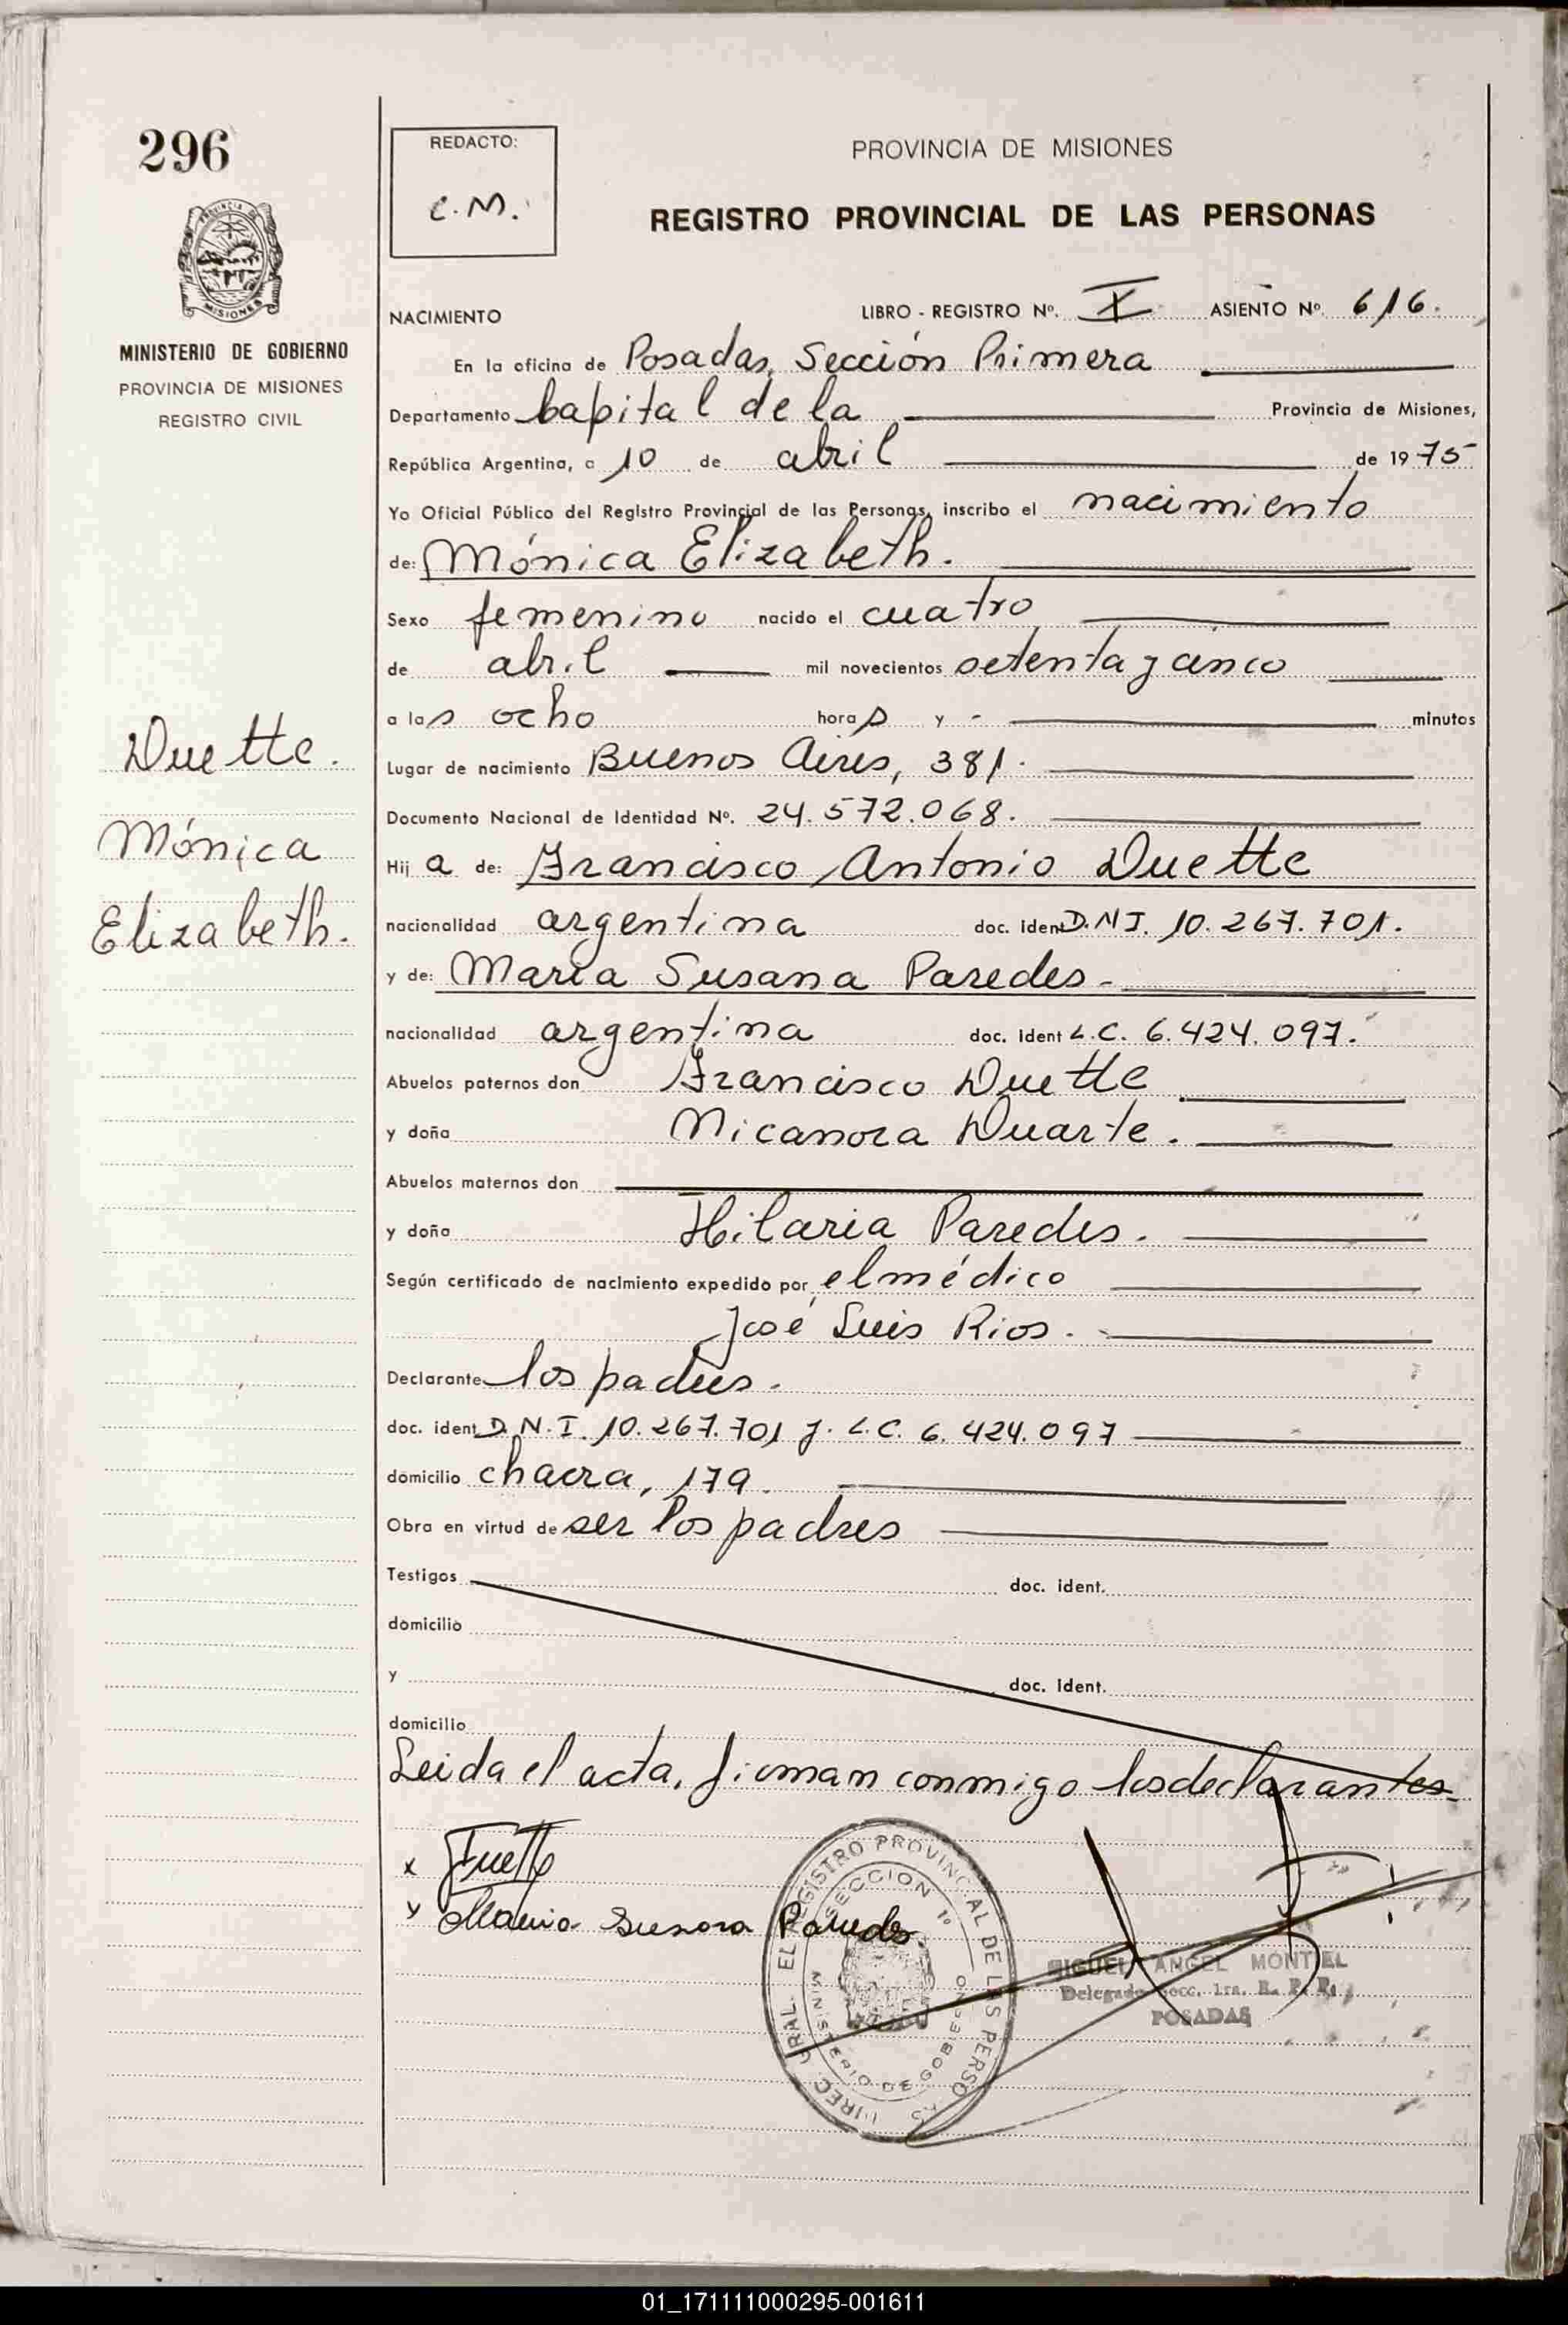 296
PROVINCIA DE MISIONES
MINISTERIO DE GOBIERNO
PROVINCIA DE MISIONES
REGISTRO CIVIL
Duette.
Mónica
Elizabeth.
REDACTO:
C.M.
PROVINCIA DE MISIONES
REGISTRO PROVINCIAL DE LAS PERSONAS
NACIMIENTO LIBRO - REGISTRO Nº. I ASIENTO Nº. 616.
En la oficina de Posadas, Sección Primera
Departamento Capital de la Provincia de Misiones,
República Argentina, a 10 de abril de 1975
Yo Oficial Público del Registro Provincial de las Personas, inscribo el nacimiento
de: Mónica Elizabeth.
Sexo femenino nacido el cuatro
de abril mil novecientos setenta y cinco
a las ocho horas y - minutos
Lugar de nacimiento Buenos Aires, 381.
Documento Nacional de Identidad Nº. 24.572.068.
Hija de: Francisco Antonio Duette
nacionalidad argentina doc. ident D.N.I. 10.267.701.
y de: María Susana Paredes.
nacionalidad argentina doc. ident L.C. 6.424.097.
Abuelos paternos don Francisco Duette
y doña Nicanora Duarte.
Abuelos maternos don
y doña Hilaria Paredes.
Según certificado de nacimiento expedido por el médico
José Luis Rios.
Declarante los padres.
doc. ident D.N.I. 10.267.701 y. L.C. 6.424.097
domicilio chacra, 179.
Obra en virtud de ser los padres
Testigos doc. ident.
domicilio
y doc. ident.
domicilio
Leida el acta, firman conmigo los declarantes
x Duette
x Maria Susana Paredes.
DIREC. GRAL. EL REGISTRO PROVINCIAL DE LAS PERSONAS
SECCION 1º
MINISTERIO DE GOBIERNO
MIGUEL ANGEL MONTIEL
Delegado Secc. 1ra. R. P. P.
POSADAS
01_171111000295-001611